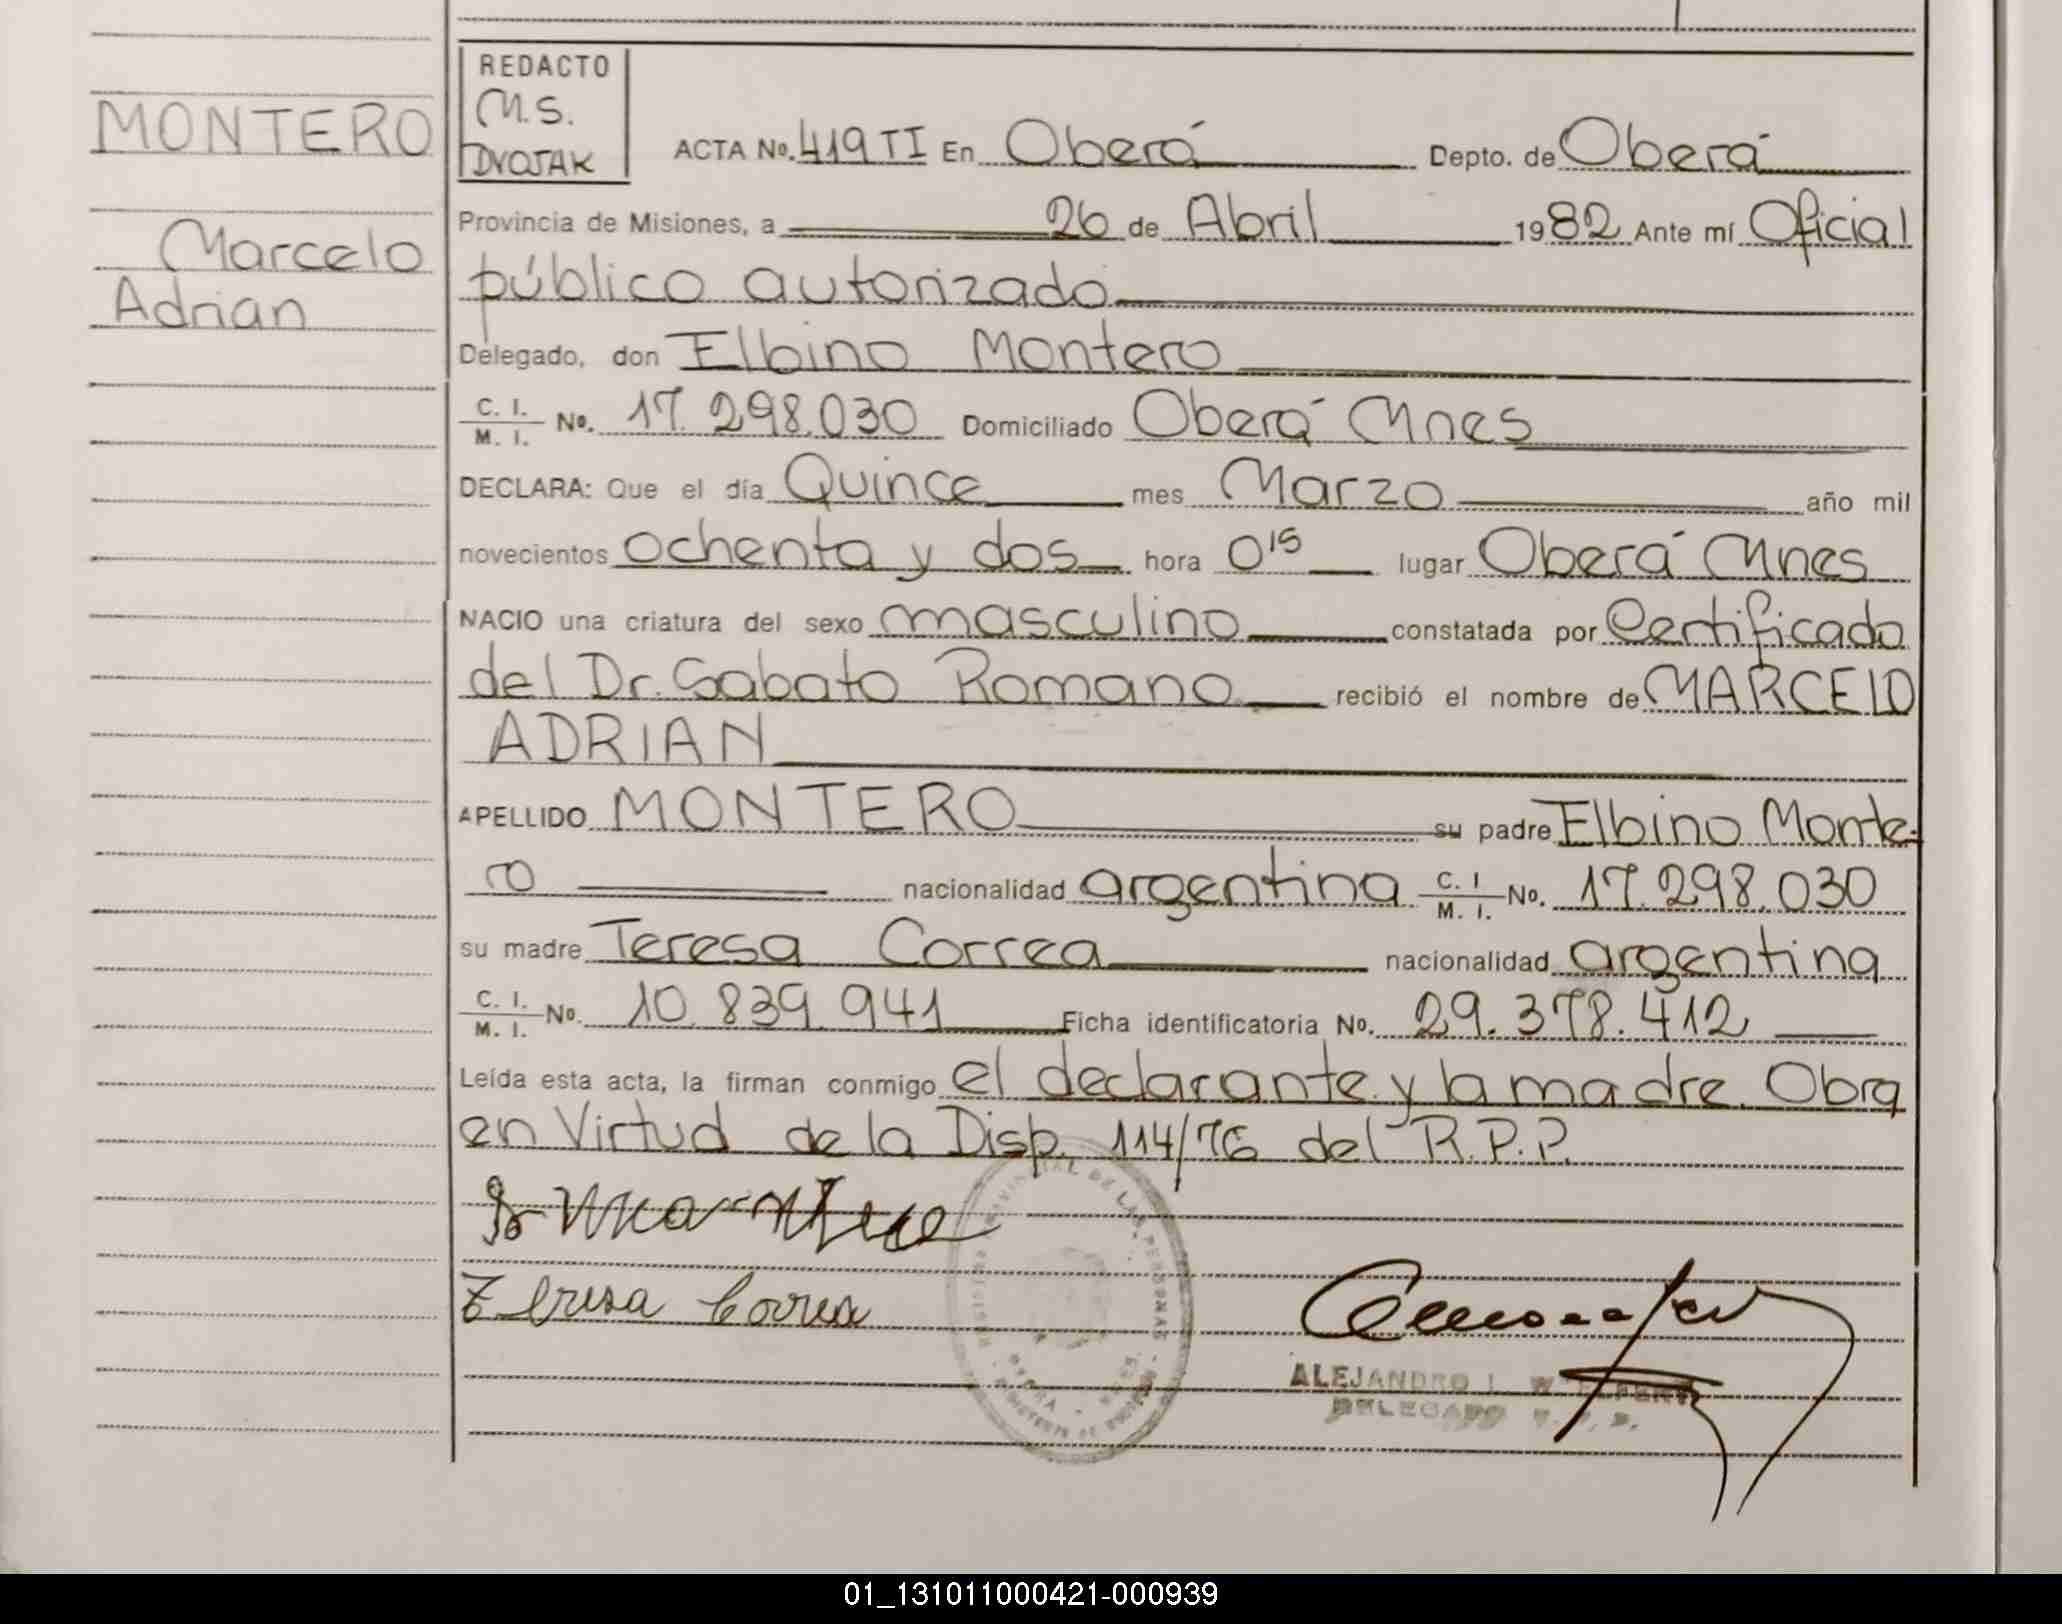 MONTERO
Marcelo
Adrian
REDACTO
M.S.
DVOJAK
ACTA No. 419 TI En Oberá Depto. de Oberá
Provincia de Misiones, a 26 de Abril 1982 Ante mí Oficial
público autorizado
Delegado, don Elbino Montero
C. I. M. I. No. 17.298.030 Domiciliado Oberá Mnes
DECLARA: Que el día Quince mes Marzo año mil
novecientos ochenta y dos hora 0 15 lugar Oberá Mnes
NACIO una criatura del sexo masculino constatada por Certificado
del Dr. Sabato Romano recibió el nombre de MARCELO
ADRIAN
APELLIDO MONTERO su padre Elbino Monte-
ro nacionalidad argentina C. I M. I. No. 17.298.030
su madre Teresa Correa nacionalidad argentina
C. I. M. I. No. 10.839.941 Ficha identificatoria No. 29.378.412
Leída esta acta, la firman conmigo el declarante y la madre. Obra
en Virtud de la Disp. 114/76 del R.P.P.
Teresa Correa
ALEJANDRO I.
DELEGADO
01_131011000421-000939